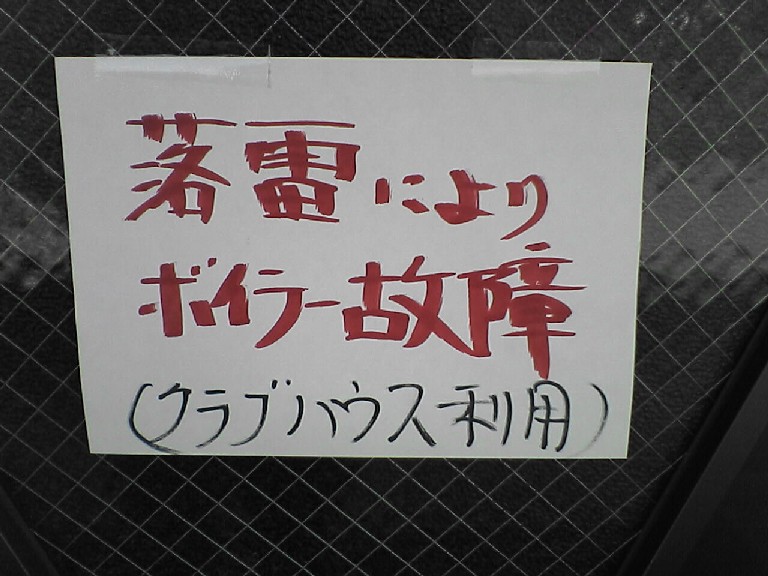 落雷により
ボイラー故障
(クラブハウス利用)